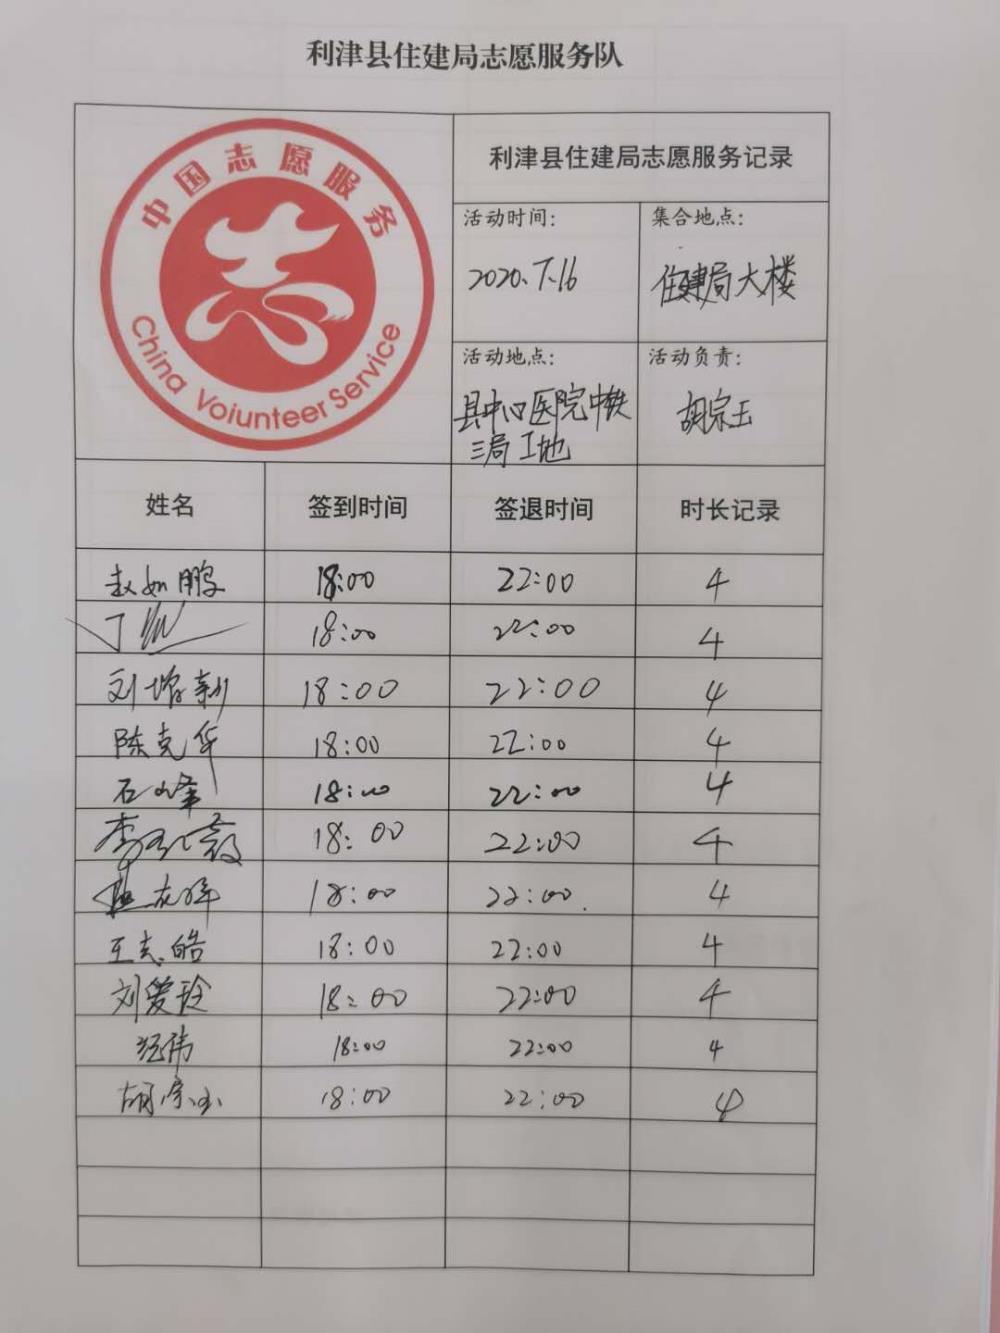 利津县住建局志愿服务队
中国志愿服务
China Voiunteer Service
利津县住建局志愿服务记录
活动时间: 集合地点:
2020.7.16 住建局大楼
活动地点: 活动负责:
县中心医院中铁 胡宗玉
三局工地
姓名 签到时间 签退时间 时长记录
赵如鹏 18:00 22:00 4
丁 18:00 22:00 4
刘增新 18:00 22:00 4
陈克华 18:00 22:00 4
石峰 18:00 22:00 4
李 18:00 22:00 4
18:00 22:00 4
王志皓 18:00 22:00 4
刘爱玲 18:00 22:00 4
伟 18:00 22:00 4
胡宗玉 18:00 22:00 4